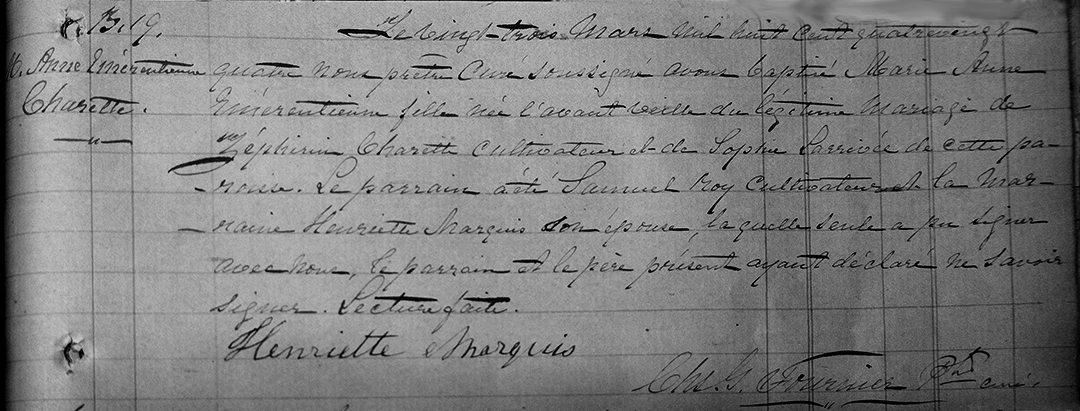 B. 19.
M. Anne Emérentienne
Charette.
Le vingt-trois Mars mil huit cent quatrevingt
quatre nous prêtre Curé soussigné avons baptisé Marie Anne
Emérentienne fille née l'avant veille du légitime mariage de
Zéphirin Charette cultivateur et de Sophie Larrivée de cette pa-
-roisse. Le parrain a été Samuel Roy cultivateur et la mar-
-raine Henriette Marquis son épouse, laquelle seule a pu signer
avec nous, le parrain et le père présent ayant déclaré ne savoir
signer. Lecture faite.
Henriette Marquis
Chs G. Fournier Ptre curé.